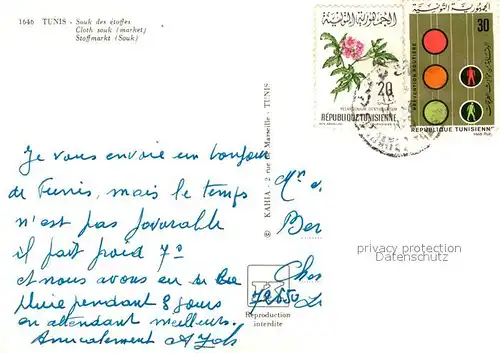 1646 TUNIS - Souk des étoffes
Cloth souk (market)
Stoffmarkt (Souk)
الجمهورية التونسية
20
PELARGONIUM
REPUBLIQUE TUNISIENNE
الجمهورية التونسية
30
PREVENTION ROUTIERE
REPUBLIQUE TUNISIENNE
© KAHIA - 2 rue de Marseille - TUNIS
Je vous envoie un bonjour
de Tunis, mais le temps
n'est pas favorable
il fait froid 7º
et nous avons eu de la
pluie pendant 8 jours
en attendant meilleurs.
Amicalement
Mr
Ber
Ches
72650
privacy protection
DELCAMPE.NET
Reproduction
interdite